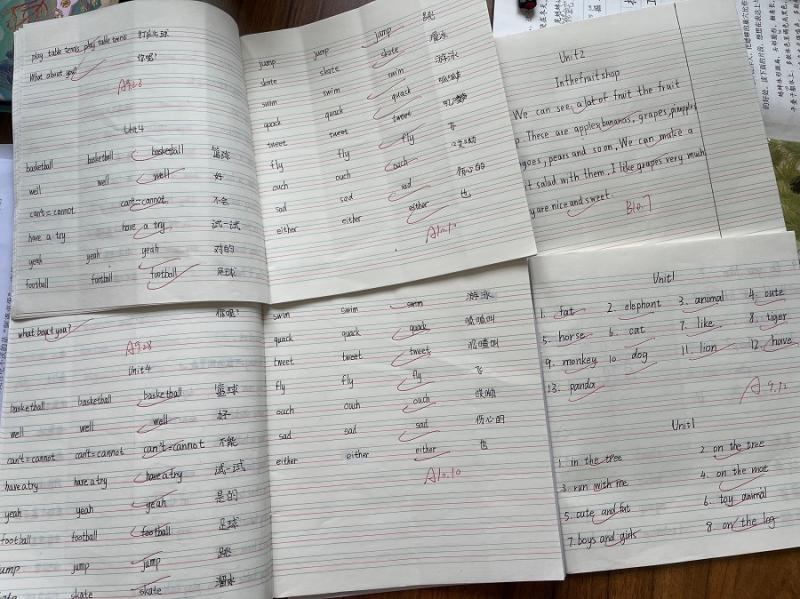 play table tennis play table tennis 打乒乓球
What about you? 你呢?
A 9.28
Unit 4
basketball basketball basketball 篮球
well well well 好
can't=cannot can't=cannot 不会
have a try have a try 试一试
yeah yeah yeah 对的
football football football 足球
jump jump jump 跳
skate skate skate
swim swim swim 游泳
quack quack quack
tweet tweet tweet
fly fly fly 飞
ouch ouch ouch
sad sad sad 伤心的
either either either 也
A 10.10
Unit2
In the fruit shop
We can see a lot of fruit the fruit
These are apples, bananas, grapes,
pears and soon, We can make a
salad with them, I like grapes very much
are nice and sweet.
B 10.7
what about you? 你呢?
A 9.28
Unit 4
basketball basketball basketball 篮球
well well well 好
can't=cannot can't=cannot can't=cannot 不能
have a try have a try have a try 试一试
yeah yeah yeah 是的
football football football 足球
jump jump jump 跳
skate skate 溜冰
swim swim swim 游泳
quack quack quack
tweet tweet tweet
fly fly fly 飞
ouch ouch ouch
sad sad sad 伤心的
either either either 也
A 10.10
Unit1
1. fat 2. elephant 3. animal 4. cute
5. horse 6. cat 7. like 8. tiger
9. monkey 10. dog 11. lion 12. have
13. panda
A 9.12
Unit1
1. in the tree 2. on the tree
3. run with me 4. on the
5. cute and fat 6. toy animal
7. boys and girls 8. on the leg